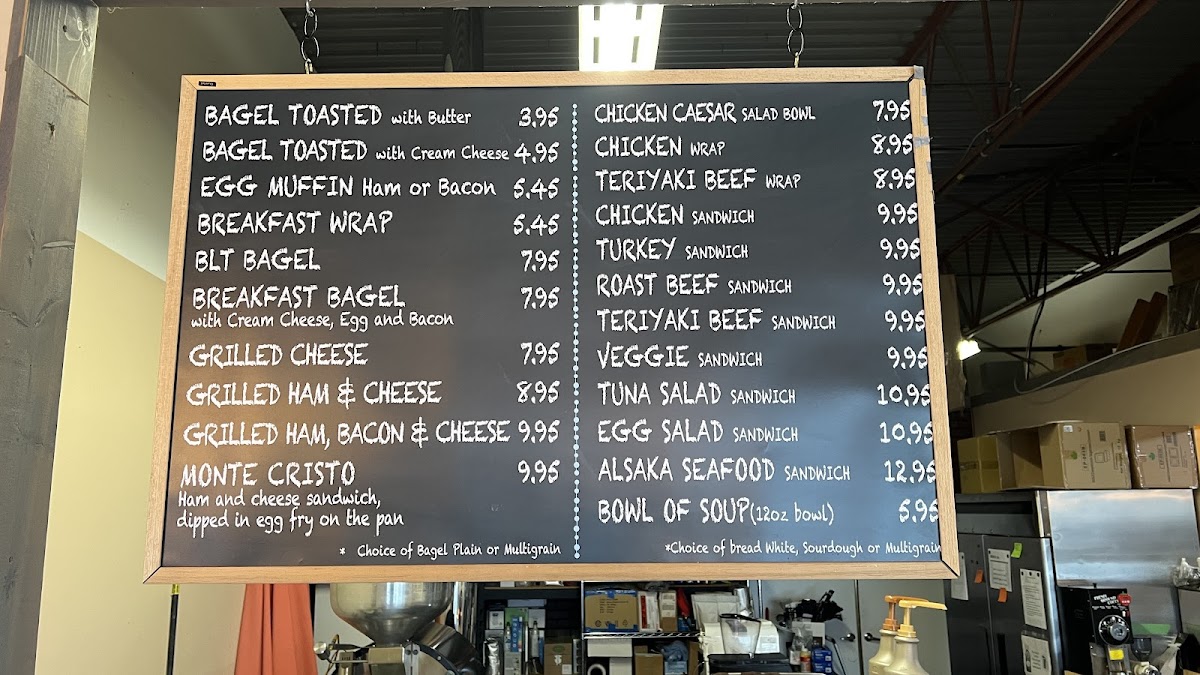 BAGEL TOASTED with Butter 3.95
BAGEL TOASTED with Cream Cheese 4.95
EGG MUFFIN Ham or Bacon 5.45
BREAKFAST WRAP 5.45
BLT BAGEL 7.95
BREAKFAST BAGEL 7.95
with Cream Cheese, Egg and Bacon
GRILLED CHEESE 7.95
GRILLED HAM & CHEESE 8.95
GRILLED HAM, BACON & CHEESE 9.95
MONTE CRISTO 9.95
Ham and cheese sandwich,
dipped in egg fry on the pan
* Choice of Bagel Plain or Multigrain
CHICKEN CAESAR SALAD BOWL 7.95
CHICKEN WRAP 8.95
TERIYAKI BEEF WRAP 8.95
CHICKEN SANDWICH 9.95
TURKEY SANDWICH 9.95
ROAST BEEF SANDWICH 9.95
TERIYAKI BEEF SANDWICH 9.95
VEGGIE SANDWICH 9.95
TUNA SALAD SANDWICH 10.95
EGG SALAD SANDWICH 10.95
ALSAKA SEAFOOD SANDWICH 12.95
BOWL OF SOUP(12oz bowl) 5.95
*Choice of bread White, Sourdough or Multigrain